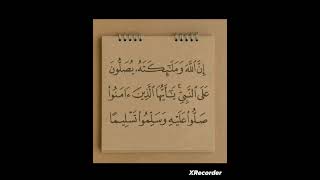 إِنَّ ٱللَّهَ وَمَلَـٰٓئِكَتَهُۥ يُصَلُّونَ
عَلَى ٱلنَّبِىِّ ۚ يَـٰٓأَيُّهَا ٱلَّذِينَ ءَامَنُوا۟
صَلُّوا۟ عَلَيْهِ وَسَلِّمُوا۟ تَسْلِيمًا
XRecorder